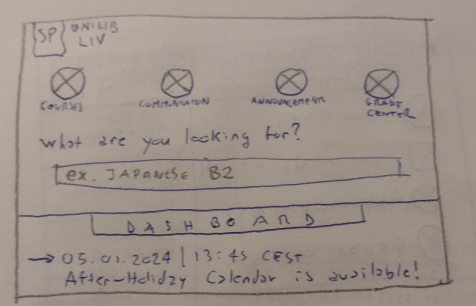 SP UNILIB
LIV
COURSES
COMMUNICATION
ANNOUNCEMENTS
GRADE
CENTER
What are you looking for?
ex. JAPANESE B2
DASHBOARD
→ 05.01.2024 | 13:45 CEST
After-Holiday Calendar is available!